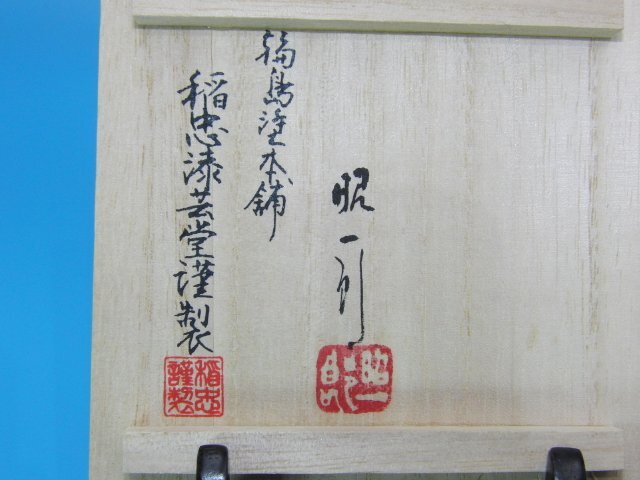 昭一郎
輪島塗本舗
稲忠漆芸堂謹製
稲忠謹製